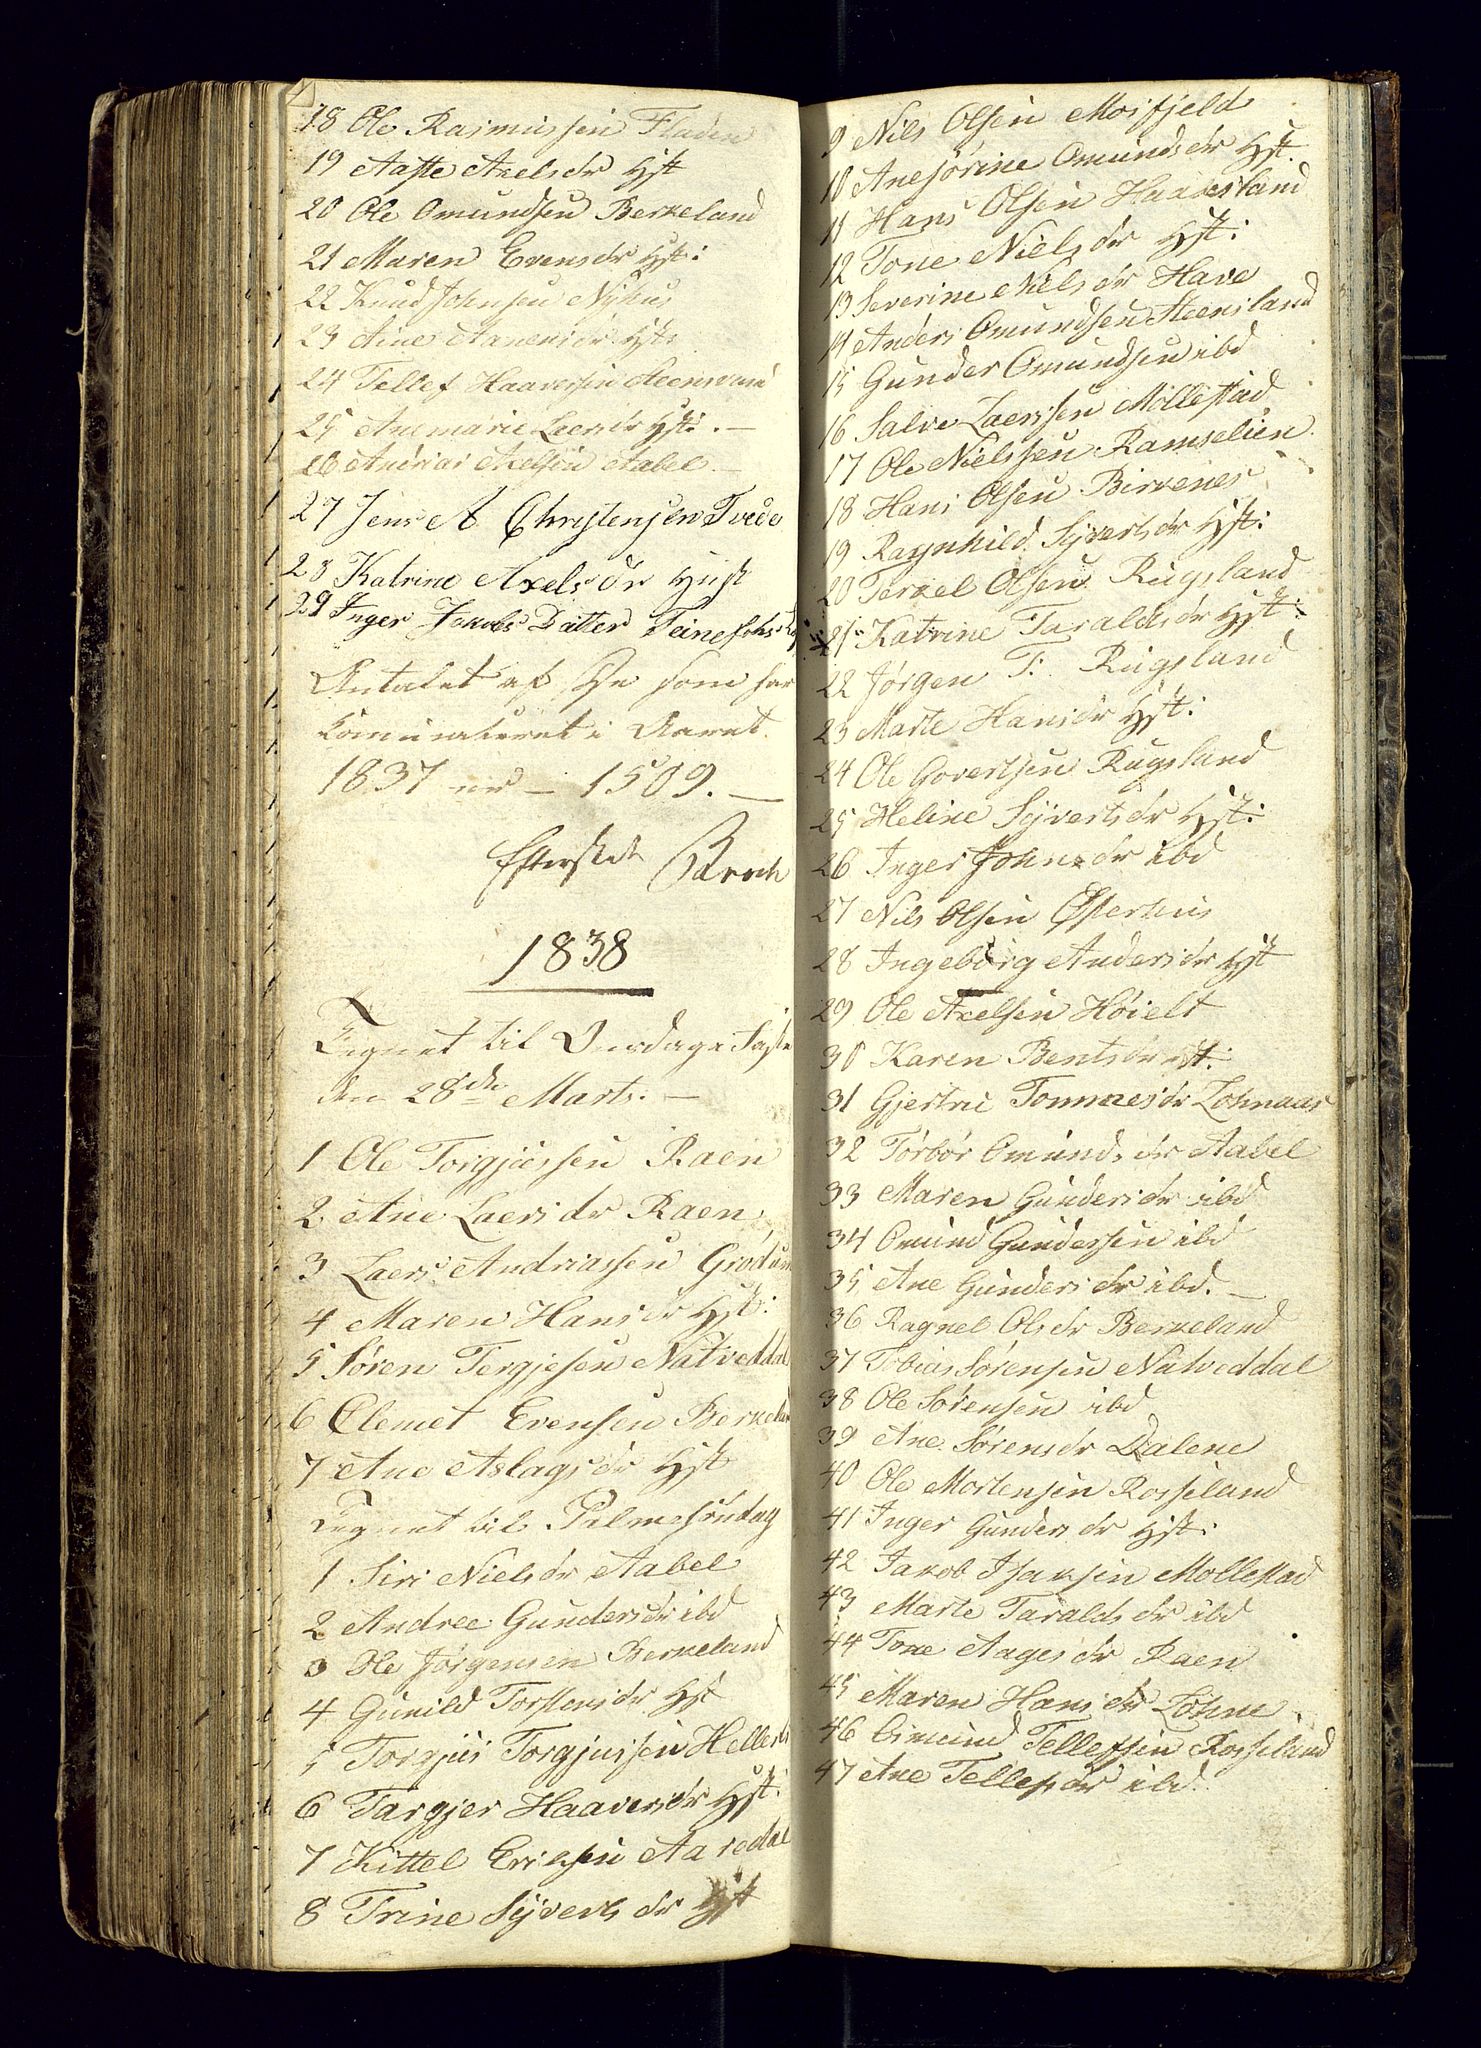 18 Ole Rasmussen Fladen
19 Aaste Axelsdr Hst
20 Ole Omundsen Berkeland
21 Maren Evensdr Hst:
22 Knud Johnsen Nyhus
23 Aine Aanensdr Hst:
24 Tellef Haaversen
25 Anemarie Laersdr Hst: . —
26 Andrias Axelsen Aabel —
27 Jens A Christensen Tvede
28 Katrine Axelsdr Hust
29 Inger Jakobs Datter
Antalet af De som har
Communiceret i Aaret
1837 er — 1509. —
Broch
1838
Tegnet til Onsdags Faste
den 28de Marts. —
1 Ole Torgjussen Raen
2 Ane Laersdr Raen
3 Laers Andriassen Grødum
4 Maren Hansdr Hst:
5 Søren Tergjesen Natveddal
6 Clemet Evensen Berkeland
7 Ane Aslagsdr Hst
Tegnet til Palmesøndag
1 Siri Nielsdr Aabel
2 Andree Gundersdr ibd
3 Ole Jørgensen Berkeland
4 Gunild Torstensdr Hst
5 Torgjus Torgjussen
6 Targjer Haaversdr Hst:
7 Kittel Eriksen Aaredal
8 Trine Syvertsdr Hst
9 Nils Olsen Mosfjeld
10 Anesørine Omundsdr Hst:
11 Hans Olsen Haaverstand
12 Tone Nielsdr Hst:
13 Severine Nielsdr Have
14 Anders Omundsen Heensland
15 Gunder Omundsen ibd
16 Salve Laerssen Mollestad
17 Ole Nielssen Ramselien
18 Hans Olsen Birkenes
19 Ragnhild Syvertsdr Hst:
20 Terkel Olsen Rugsland
21 Katrine Taraldsdr Hst:
22 Jørgen T: Rugsland
23 Marte Hansdr Hst:
24 Ole Govertsen Rugsland
25 Heline Syvertsdr Hst:
26 Inger Johnsdr ibd
27 Nils Olsen Østerhus
28 Ingeborg Andersdr Hst
29 Ole Axelsen Høielt
30 Karen Bentsdr Hst:
31 Gjestru Tommesdr Lohnaas
32 Torbor Omundsdr Aabel
33 Maren Gundersdr ibd
34 Omund Gundersen ibd
35 Ane Gundersdr ibd. —
36 Ragnel Olsdr Berkeland
37 Tobias Sørensen Natveddal
38 Ole Sørensen ibd
39 Ane Sørensdr Dalene
40 Ole Mortensen Rosseland
41 Inger Gundersdr Hst:
42 Jakob Isaksen Mollestad
43 Marte Taraldsdr ibd
44 Tone Aagesdr Raen
45 Maren Hansdr Lohne
46 Osmund Tellefsen Rosseland
47 Ane Tellefsdr ibd